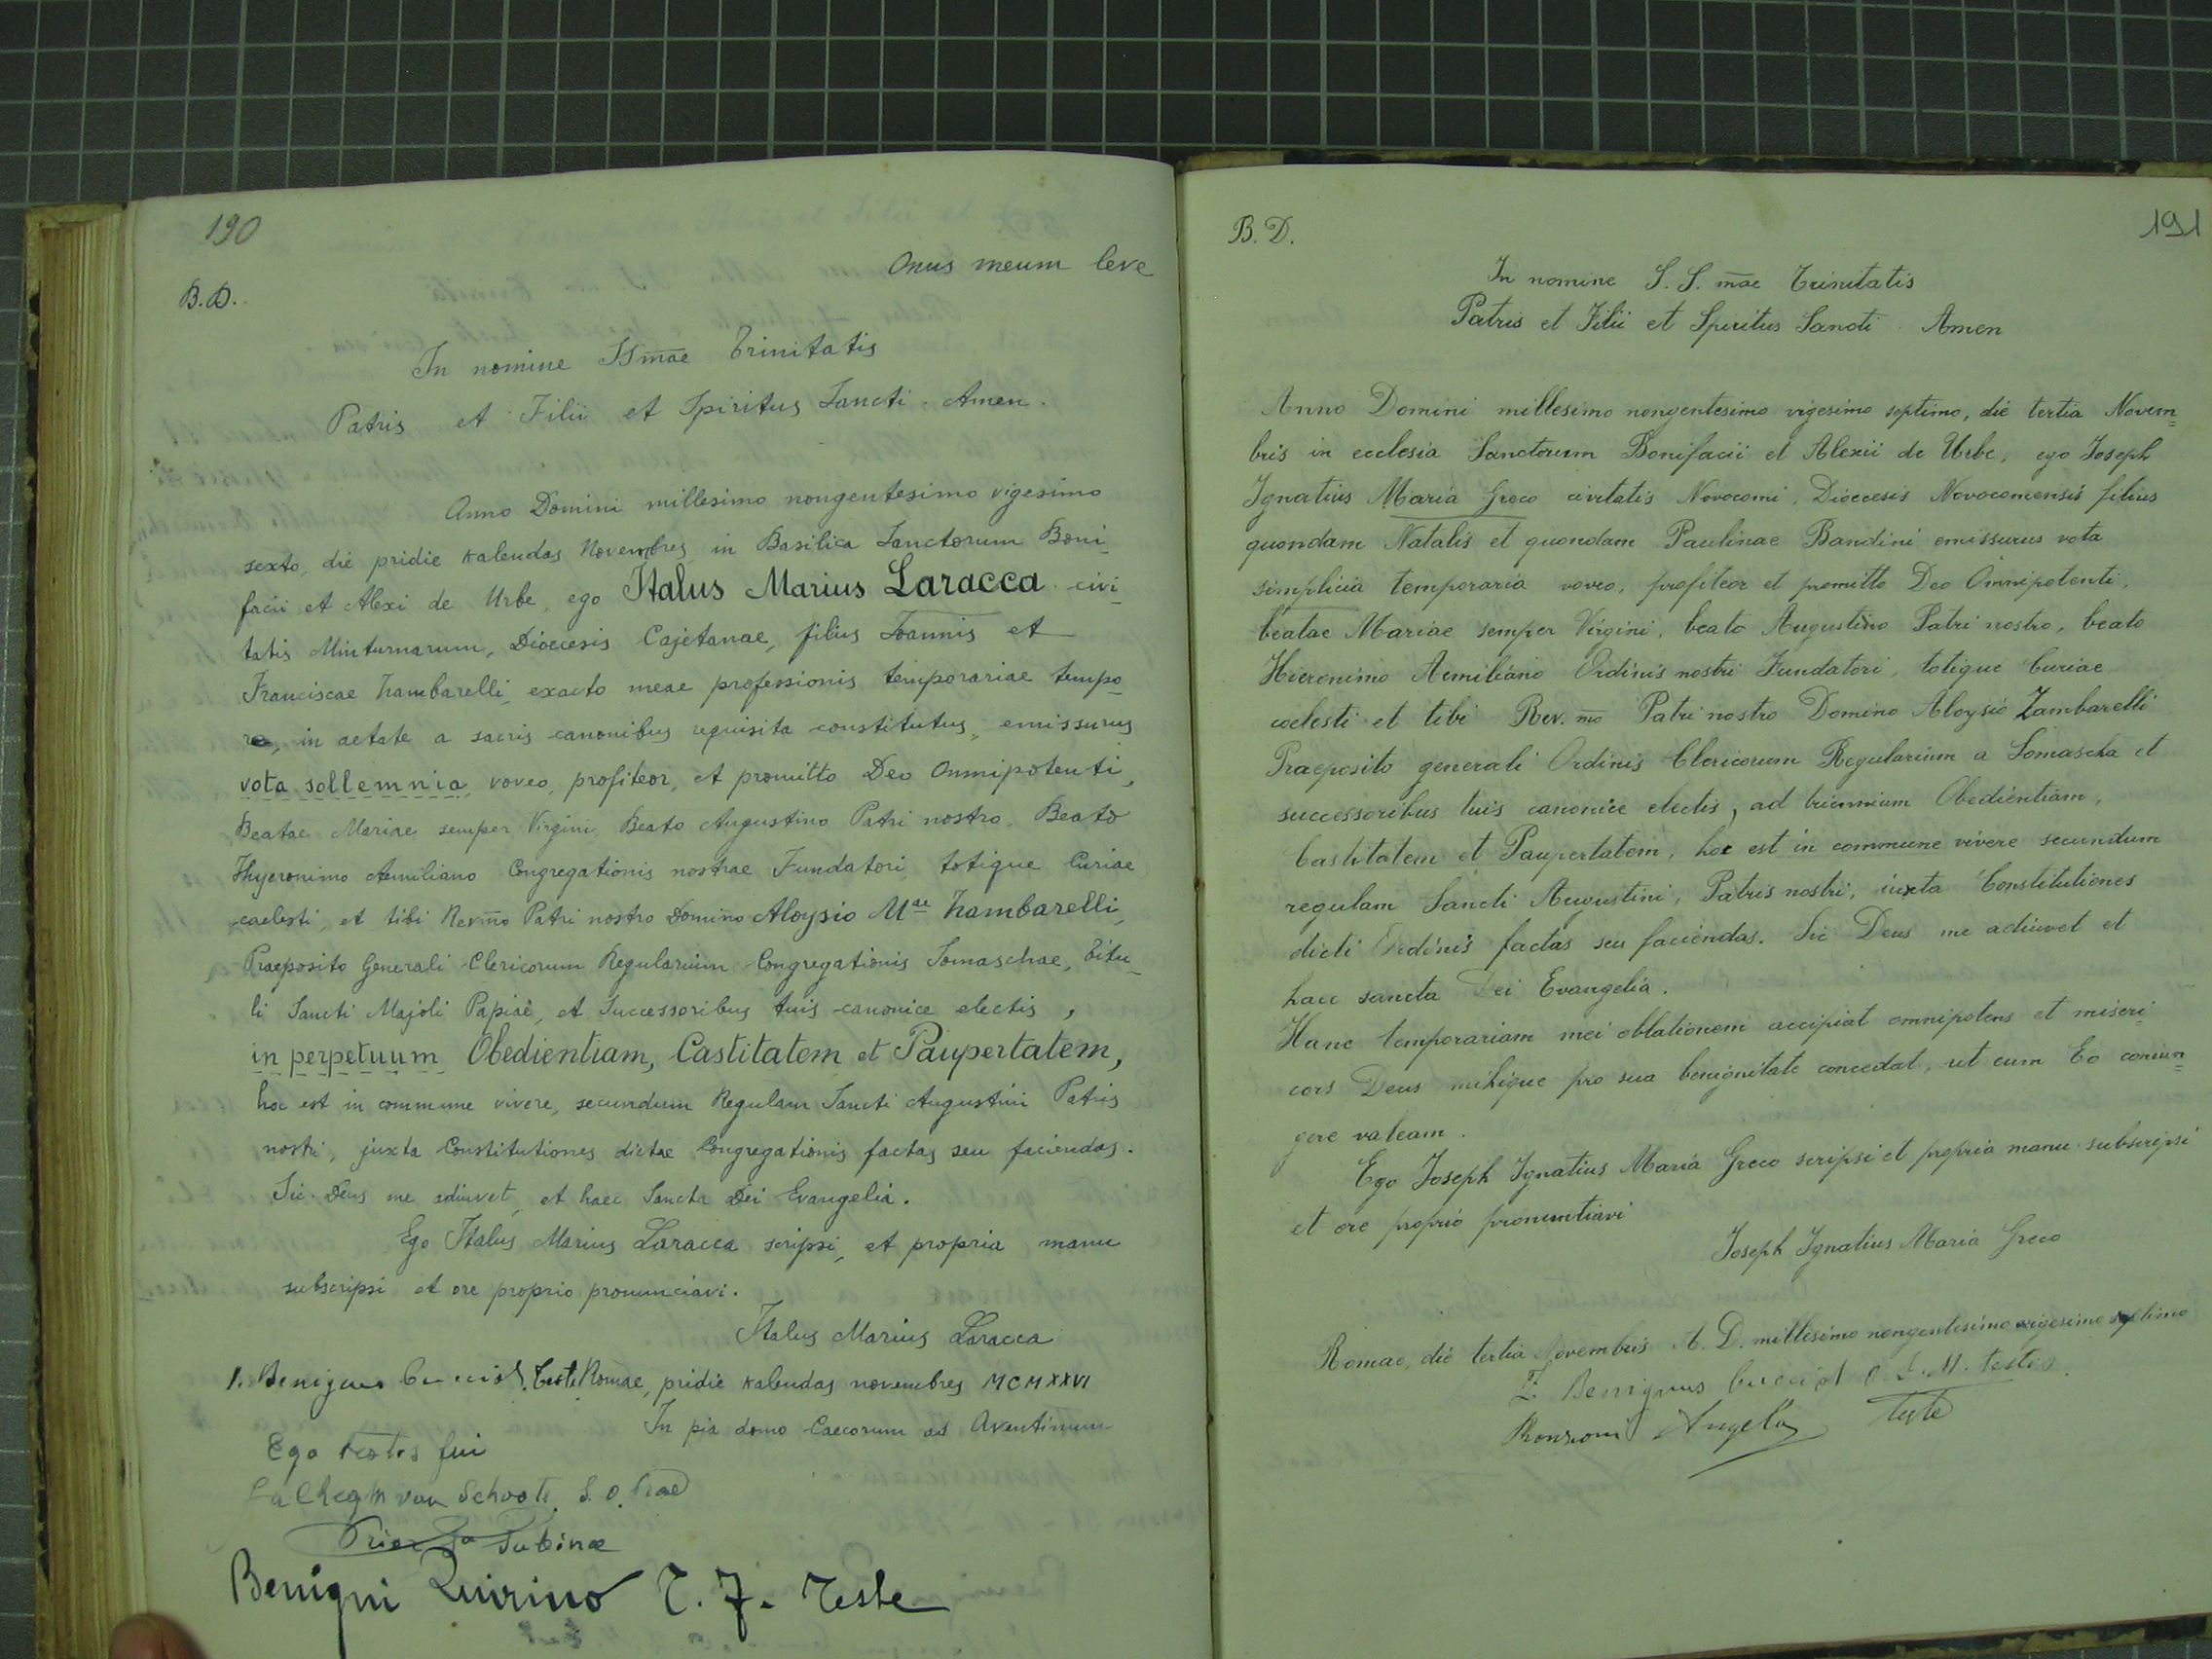 190
Onus meum leve
B. D.
In nomine SSmae Trinitatis
Patris et Filii et Spiritus Sancti. Amen.
Anno Domini millesimo nongentesimo vigesimo
sexto, die pridie Kalendas Novembres in Basilica Sanctorum Boni-
facii et Alexi de Urbe, ego Italus Marius Laracca civi-
tatis Minturnarum, Dioecesis Cajetanae, filius Joannis et
Franciscae Zambarelli, exacto meae professionis temporariae tempo-
re, in aetate a sacris canonibus requisita constitutus, emissurus
vota sollemnia, voveo, profiteor, et promitto Deo Omnipotenti,
Beatae Mariae semper Virgini, Beato Augustino Patri nostro, Beato
Hyeronimo Aemiliano Congregationis nostrae Fundatori, totique Curiae
caelesti, et tibi Revmo Patri nostro Domino Aloysio Mae Zambarelli,
Praeposito Generali Clericorum Regularium Congregationis Somaschae, Titu-
li Sancti Majoli Papiae, et Successoribus tuis canonice electis,
in perpetuum Obedientiam, Castitatem et Paupertatem,
hoc est in commune vivere, secundum Regulam Sancti Augustini Patris
nostri, juxta Constitutiones dictae Congregationis factas seu faciendas.
Sic Deus me adiuvet, et haec Sancta Dei Evangelia.
Ego Italus Marius Laracca scripsi, et propria manu
subscripsi et ore proprio pronunciavi.
Italus Marius Laracca
Benignus Teste Romae, pridie Kalendas novembres MCMXXVI
In pia domo Caecorum ad Aventinum
Ego testis fui
van Schoote S. O.
Prior Sabinae
Benigni Quirino T. F. Teste
B. D.
191
In nomine S. S. mae Trinitatis
Patris et Filii et Spiritus Sancti. Amen
Anno Domini millesimo nongentesimo vigesimo septimo, die tertia Novem=
bris in ecclesia Sanctorum Bonifacii et Alexii de Urbe, ego Joseph
Ignatius Maria Greco civitatis Novocomi, Dioecesis Novocomensis filius
quondam Natalis et quondam Paulinae Bandini emissurus vota
simplicia temporaria voveo, profiteor et promitto Deo Omnipotenti,
beatae Mariae semper Virgini, beato Augustino Patri nostro, beato
Hieronimo Aemiliano Ordinis nostri Fundatori, totique Curiae
coelesti et tibi Rev.mo Patri nostro Domino Aloysio Zambarelli
Praeposito generali Ordinis Clericorum Regularium a Somascha et
successoribus tuis canonice electis, ad triennium Obedientiam,
Castitatem et Paupertatem, hoc est in commune vivere secundum
regulam Sancti Augustini, Patris nostri, iuxta Constitutiones
dicti Ordinis factas seu faciendas. Sic Deus me adiuvet et
haec sancta Dei Evangelia.
Hanc temporariam mei oblationem accipiat omnipotens et miseri-
cors Deus mihique pro sua benignitate concedat, ut cum Eo coniun=
gere valeam.
Ego Joseph Ignatius Maria Greco scripsi et propria manu subscripsi
et ore proprio pronuntiavi
Joseph Ignatius Maria Greco
Romae, die tertia Novembris A. D. millesimo nongentesimo vigesimo septimo
Benignus testes
Ronzoni Angelo teste